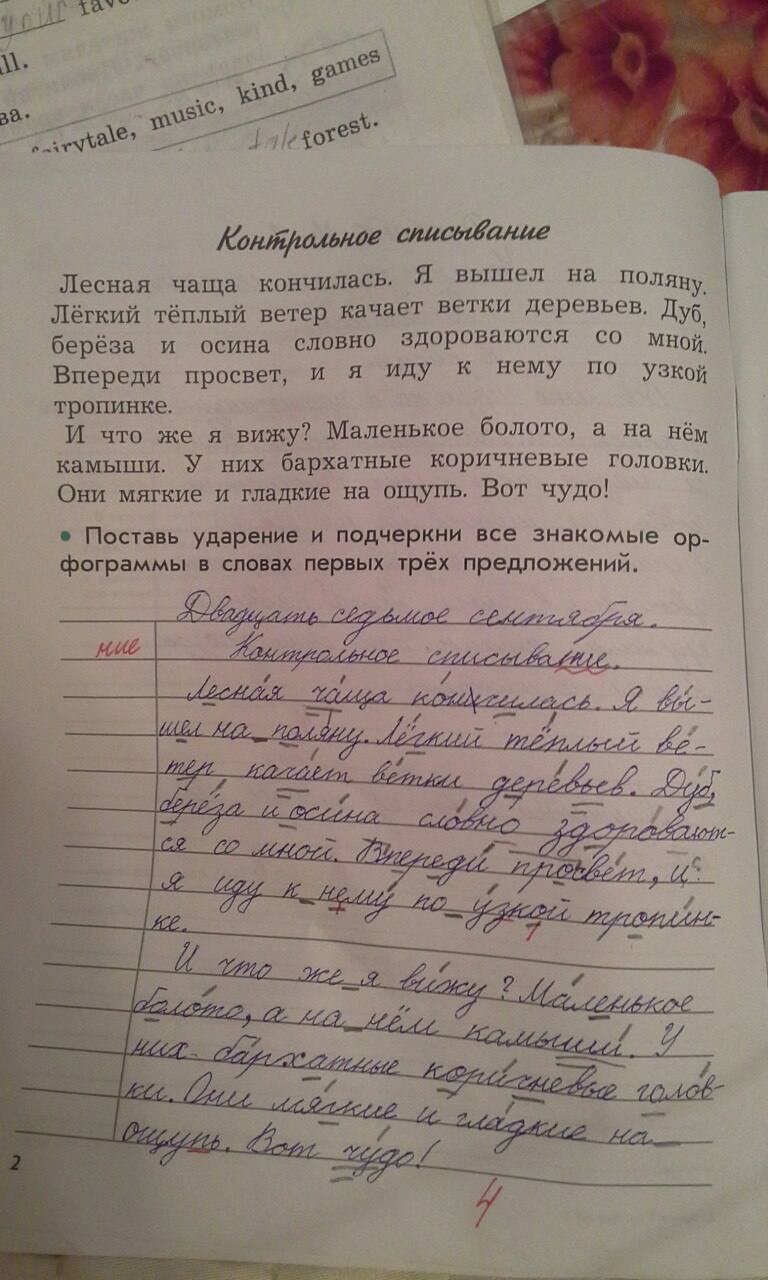 your favo
all.
ва.
fairytale, music, kind, games
tale forest.
Контрольное списывание
Лесная чаща кончилась. Я вышел на поляну.
Лёгкий тёплый ветер качает ветки деревьев. Дуб,
берёза и осина словно здороваются со мной.
Впереди просвет, и я иду к нему по узкой
тропинке.
И что же я вижу? Маленькое болото, а на нём
камыши. У них бархатные коричневые головки.
Они мягкие и гладкие на ощупь. Вот чудо!
• Поставь ударение и подчеркни все знакомые ор-
фограммы в словах первых трёх предложений.
Двадцать седьмое сентября.
ние Контрольное списывание.
Лесна́я ча́ща ко́нчилась. Я вы́-
шел на поля́ну. Лёгкий тёплый ве́-
тер кача́ет ве́тки дере́вьев. Ду́б,
берёза и оси́на сло́вно здоро́вают-
ся со мной. Впереди́ просве́т, и
я иду к нему́ по у́зкой тропи́н-
ке.
И что же я ви́жу? Ма́ленькое
боло́то, а на нём камыши́. У
них ба́рхатные кори́чневые голо́в-
ки. Они мя́гкие и гла́дкие на
ощупь. Вот чу́до!
2
4